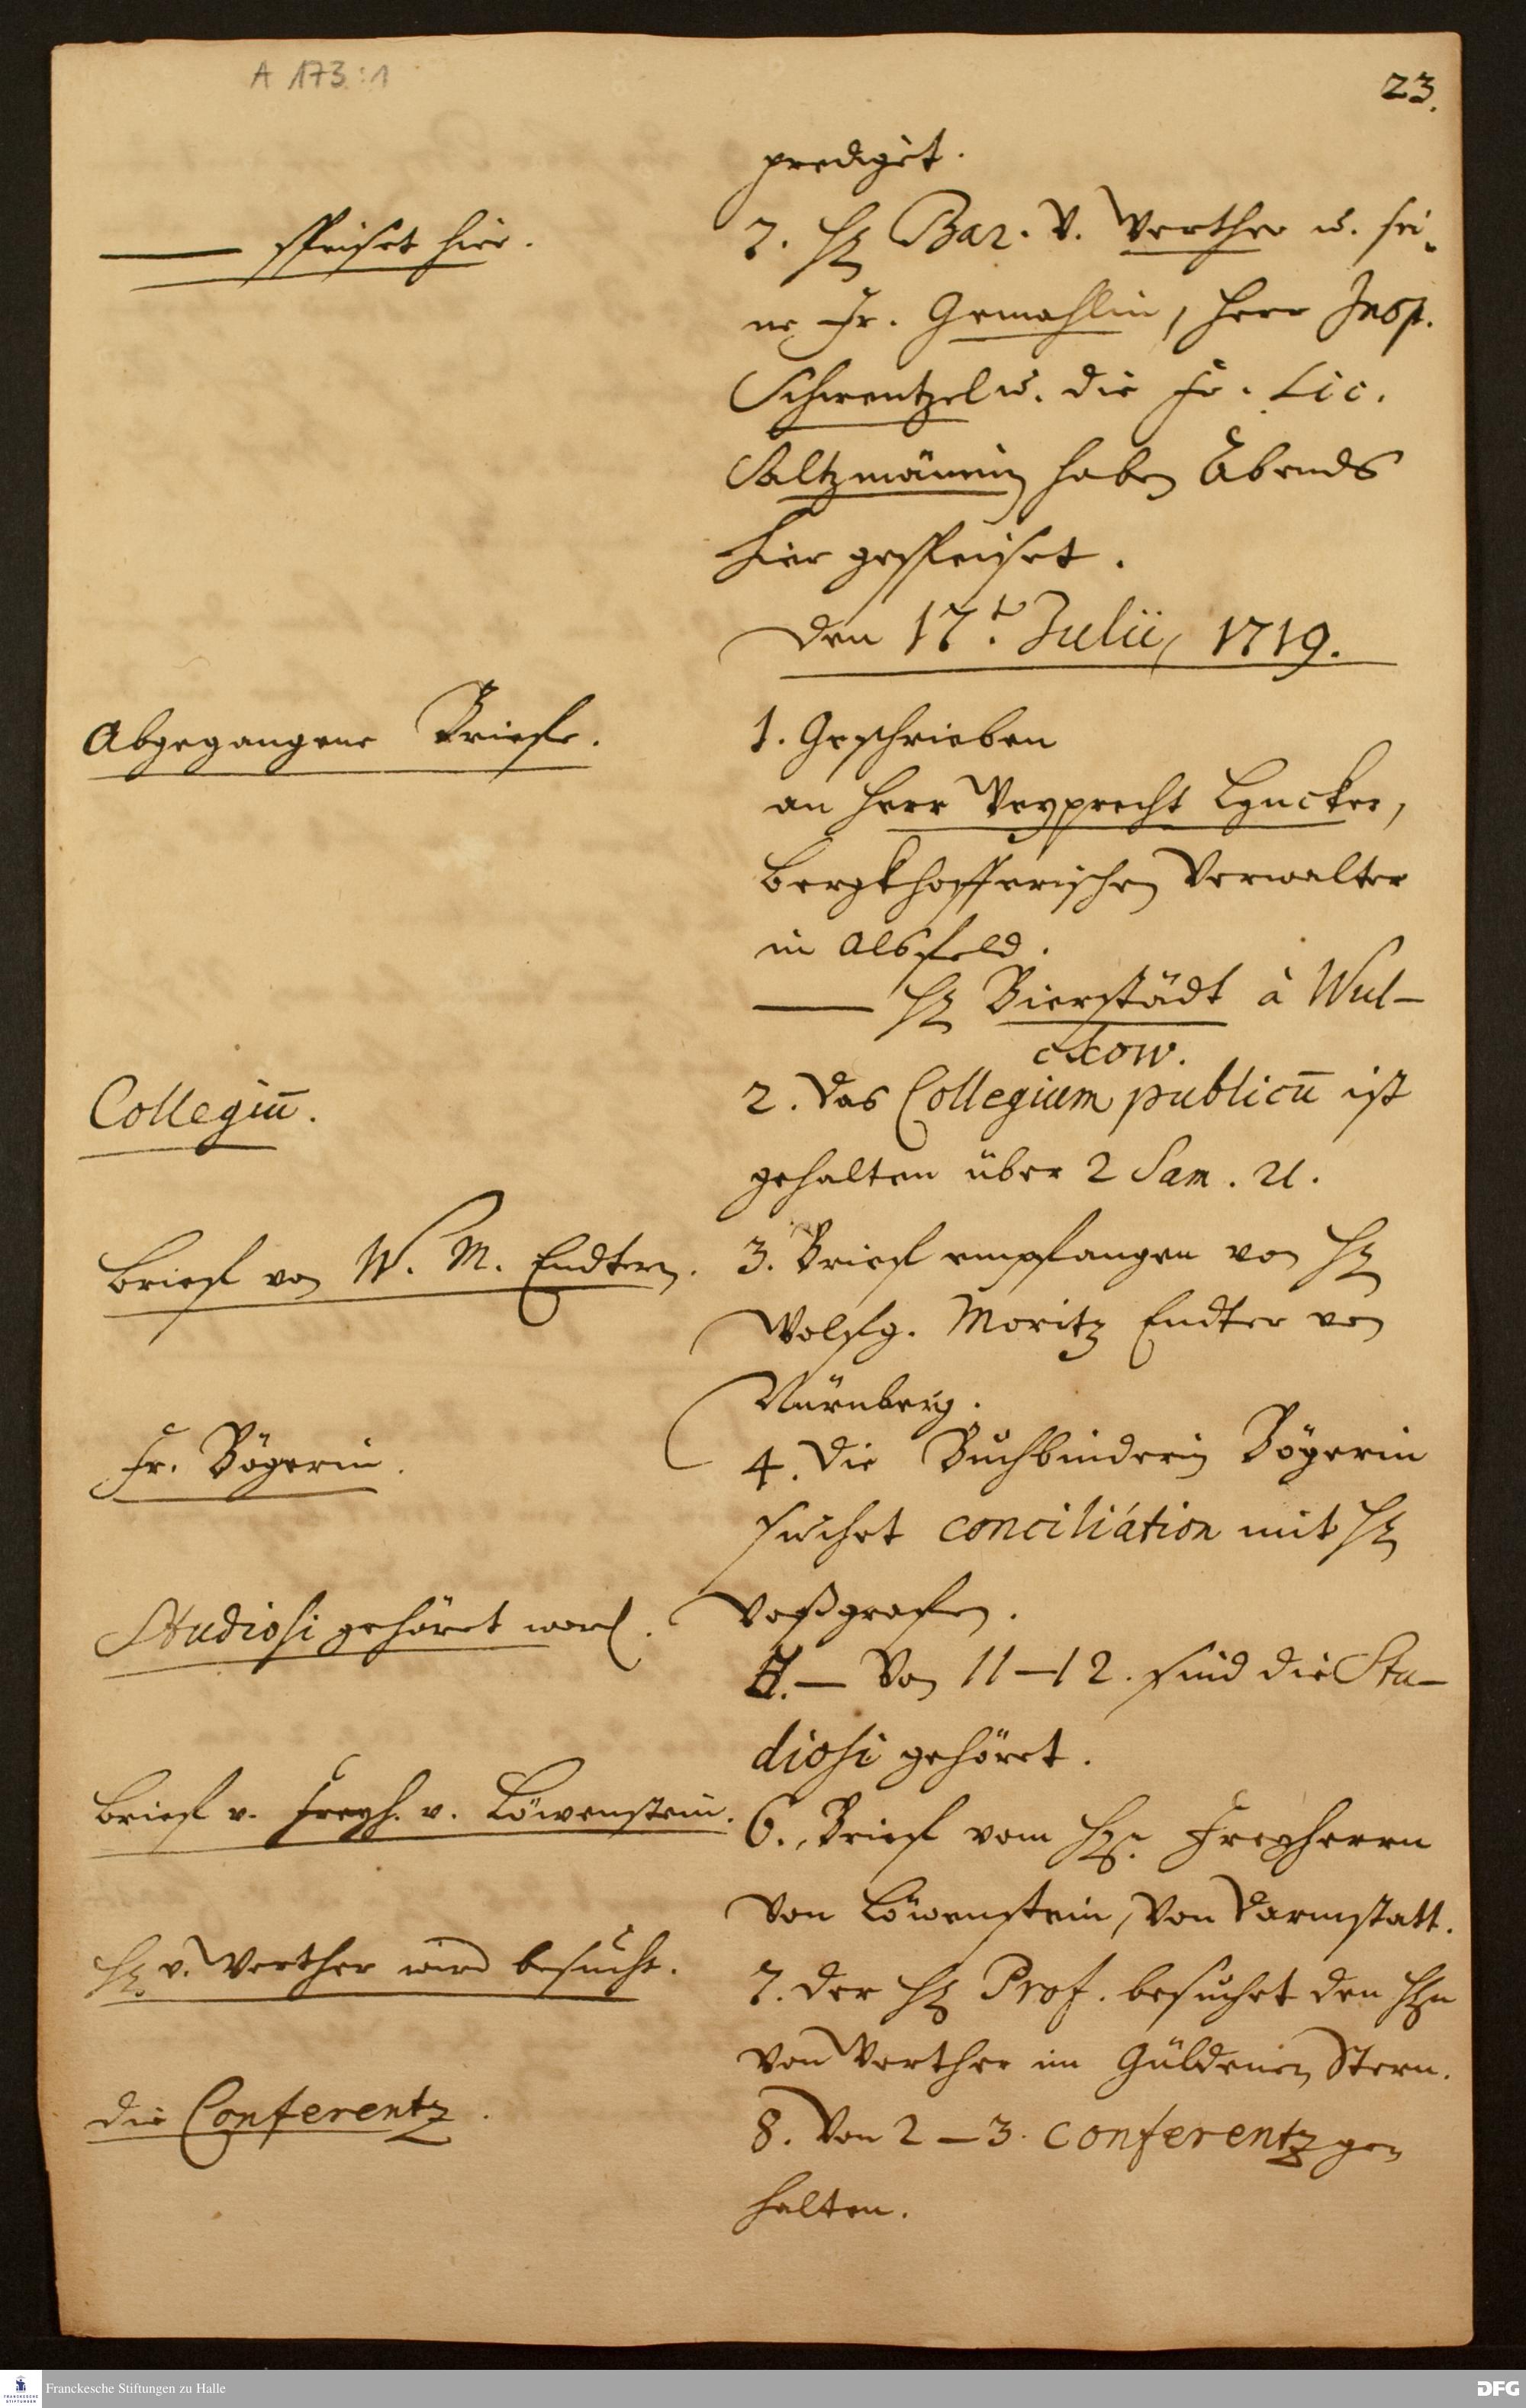 A 173:1
23.
prediget.
——— speiset hier.
7. H. Bar. v. Werther u. sei-
ne Fr. Gemahlin, Herr Insp.
Schwentzel u. die Fr. Lic.
Saltzmännin haben Abends
hier gespeiset.
Den 17.t Julii, 1719.
Abgegangene Briefe.
1. Geschrieben
an Herr Weyprecht Lyncker,
Bergkhofferischen Verwalter
in Alsfeld.
——— H. Bierstädt à Wul-
ckow.
Collegiū.
2. Das Collegium publicū ist
gehalten über 2 Sam. 21.
Brief von W. M. Endtern.
3. Brief empfangen von H.
Wolfg. Moritz Endter von
Nürnberg.
Fr. Bögerin.
4. Die Buchbinderin Bögerin
suchet conciliation mit H.
Voßgrafen.
Studiosi gehöret word.
5. — Von 11–12. sind die Stu-
diosi gehöret.
Brief v. Freyh. v. Löwenstein.
6. Brief vom H. Freyherrn
von Löwenstein, von Darmstatt.
H. v. Werther wird besucht.
7. Der H. Prof. besuchet den Hn
von Werther im Güldenen Stern.
die Conferentz.
8. Von 2–3. Conferentz ge-
halten.
Franckesche Stiftungen zu Halle
FRANCKESCHE STIFTUNGEN
DFG